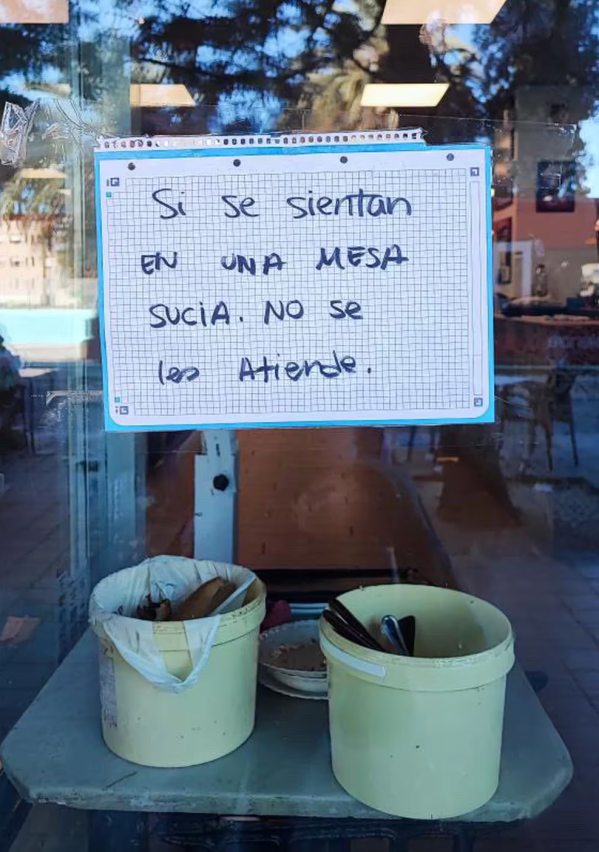 Si se sientan
EN UNA MESA
SUCIA. NO se
les Atiende.